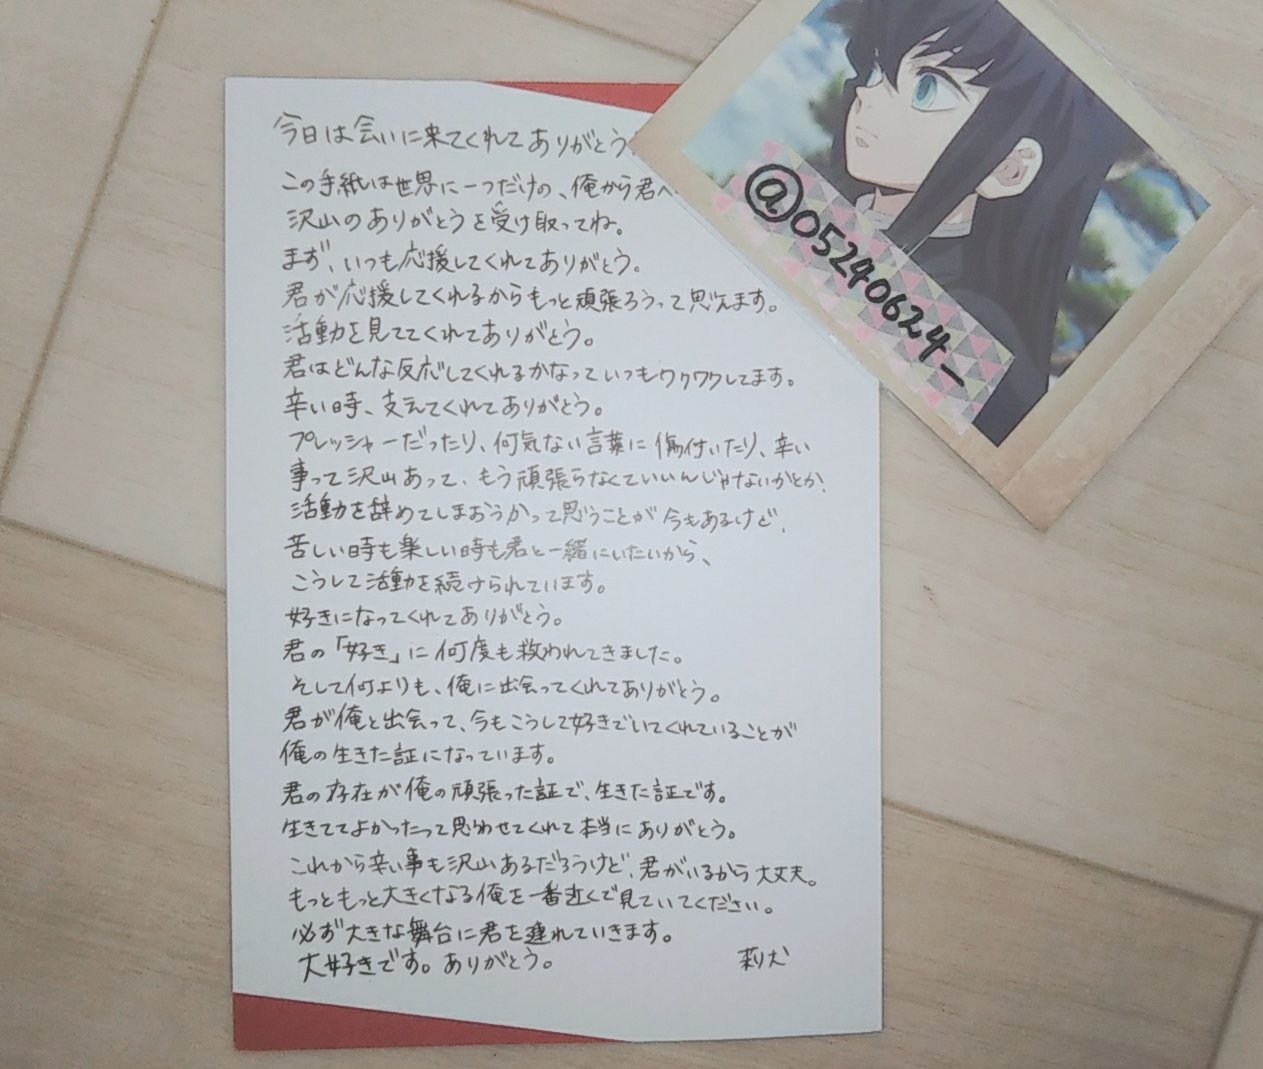 今日は会いに来てくれてありがとう
この手紙は世界に一つだけの、俺から君へ
沢山のありがとうを受け取ってね。
まず、いつも応援してくれてありがとう。
君が応援してくれるからもっと頑張ろうって思えます。
活動を見ててくれてありがとう。
君はどんな反応してくれるかなっていつもワクワクしてます。
辛い時、支えてくれてありがとう。
プレッシャーだったり、何気ない言葉に傷付いたり、辛い
事って沢山あって、もう頑張らなくていいんじゃないかとか、
活動を辞めてしまおうかって思うことが今もあるけど、
苦しい時も楽しい時も君と一緒にいたいから、
こうして活動を続けられています。
好きになってくれてありがとう。
君の「好き」に何度も救われてきました。
そして何よりも、俺に出会ってくれてありがとう。
君が俺と出会って、今もこうして好きでいてくれていることが
俺の生きた証になっています。
君の存在が俺の頑張った証で、生きた証です。
生きててよかったって思わせてくれて本当にありがとう。
これから辛い事も沢山あるだろうけど、君がいるから大丈夫。
もっともっと大きくなる俺を一番近くで見ていてください。
必ず大きな舞台に君を連れていきます。
大好きです。ありがとう。 莉犬
@05240624_